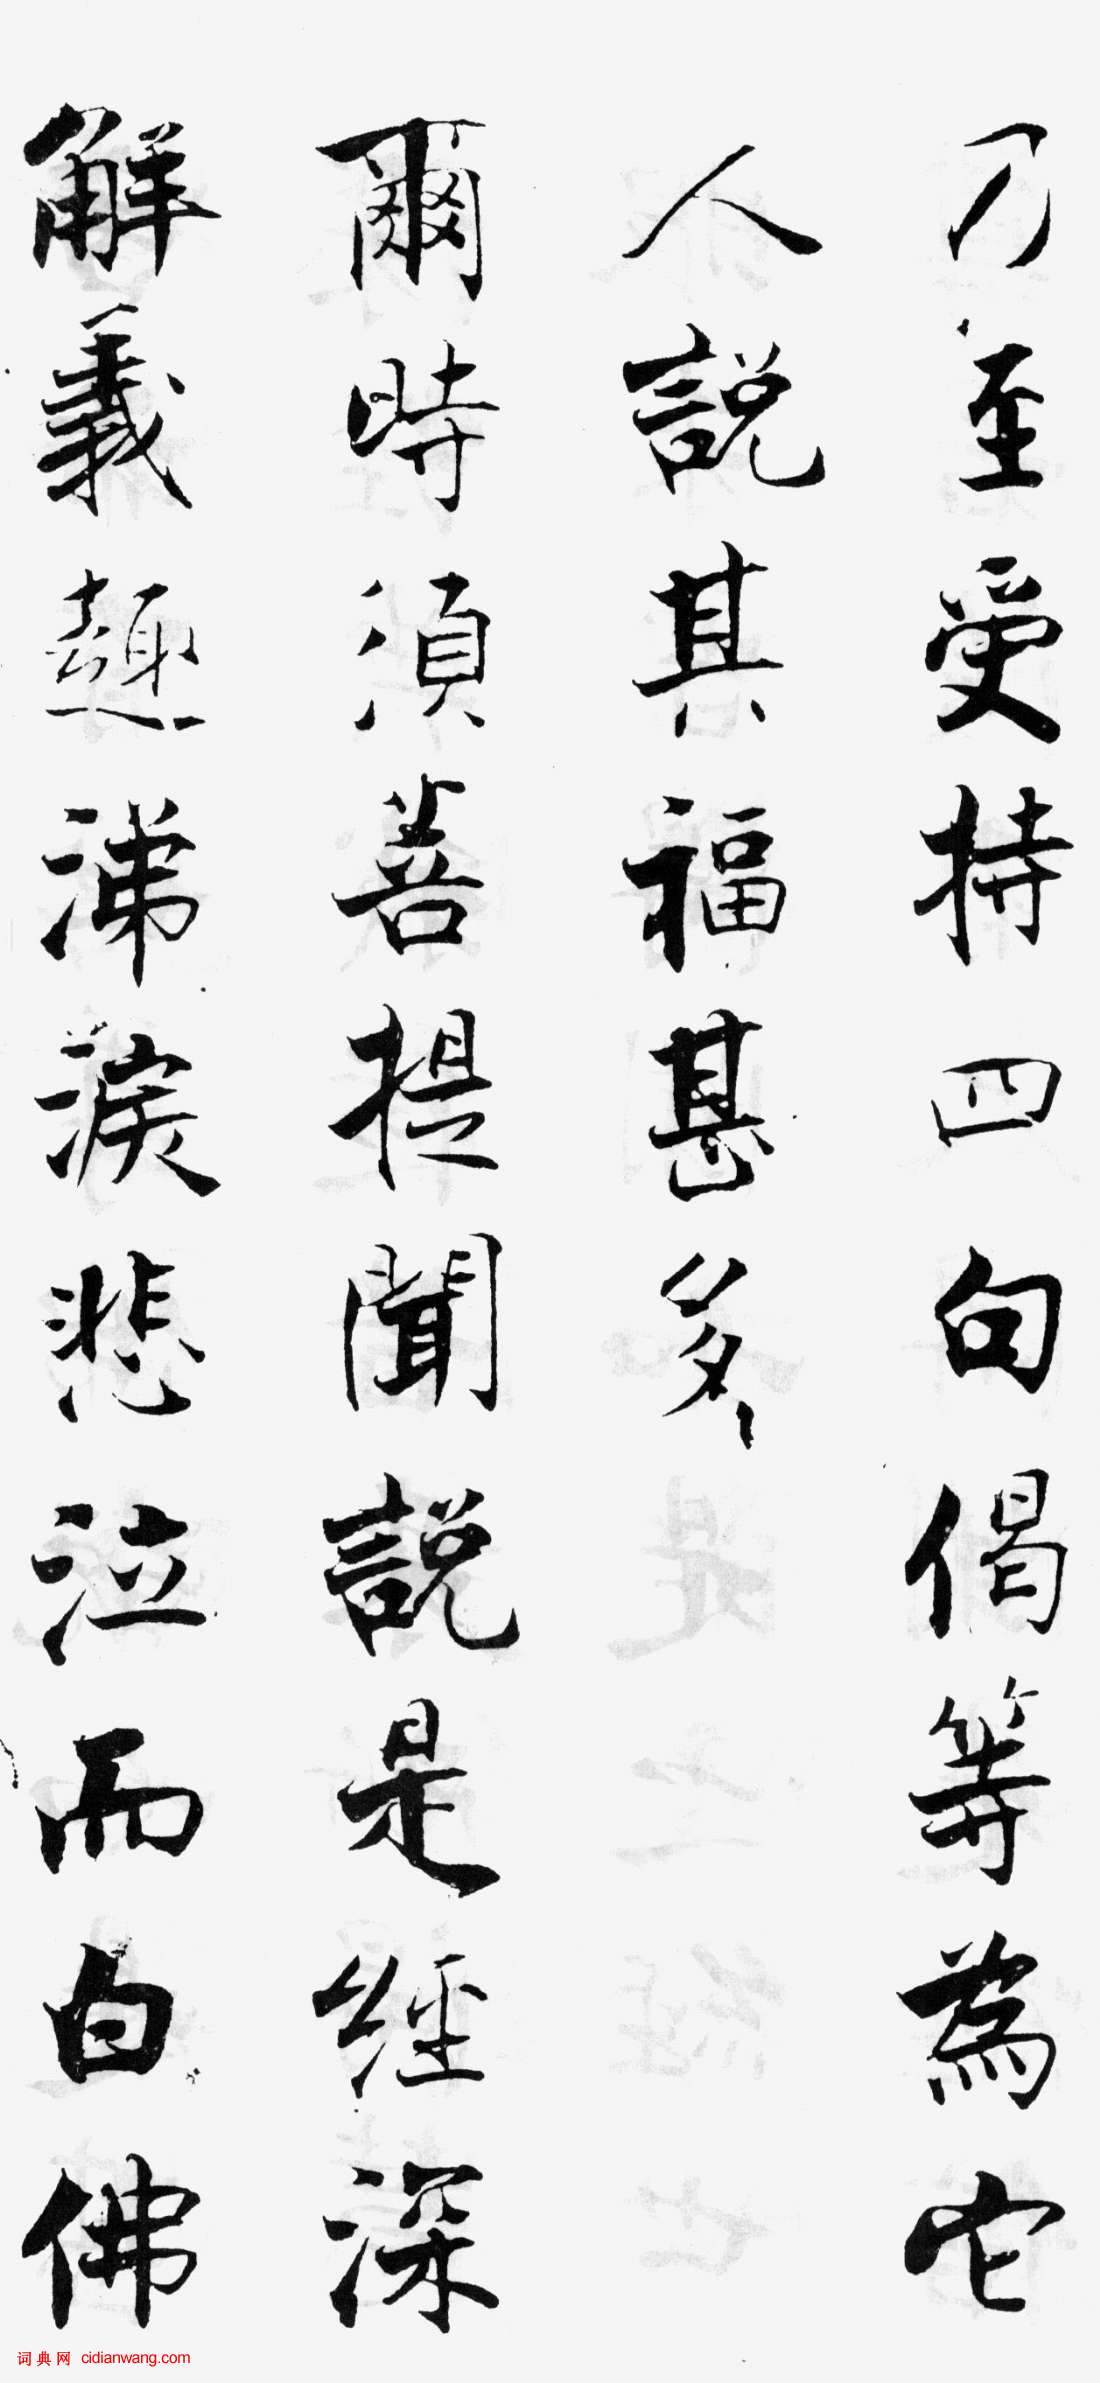 乃至受持四句偈等為它
人說其福甚多
爾時須菩提聞說是經深
解義趣涕淚悲泣而白佛
词典网 cidianwang.com